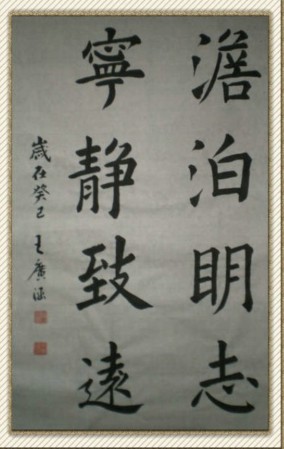 澹泊明志
寧静致遠
歲在癸巳 王廣涵